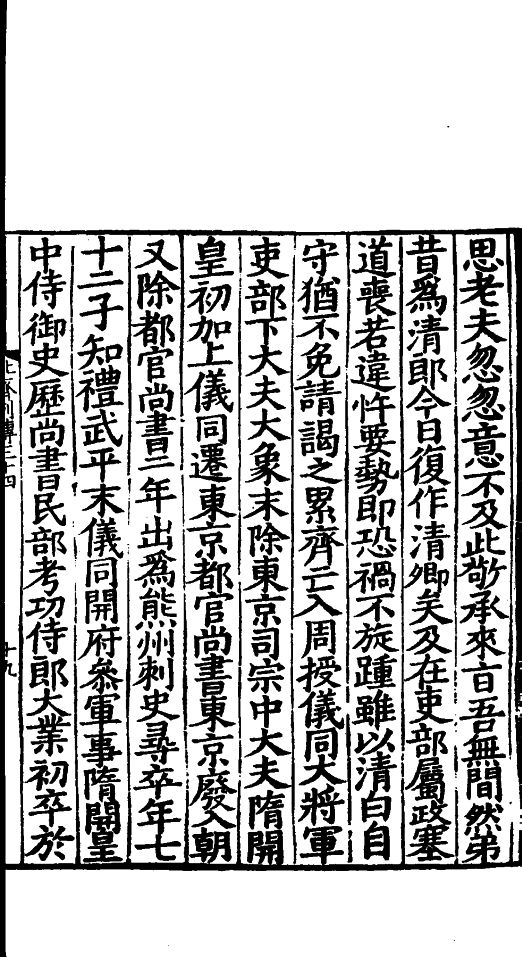 思老夫忽忽意不及此敬承來旨吾無間然弟
昔為清郎今日復作清卿矣及在吏部屬政塞
道喪若違忤要勢即恐禍不旋踵雖以清白自
守猶不免請謁之累齊亡入周授儀同大將軍
吏部下大夫大象末除東京司宗中大夫隋開
皇初加上儀同遷東京都官尚書東京廢入朝
又除都官尚書二年出為熊州刺史尋卒年七
十二子知禮武平末儀同開府叅軍事隋開皇
中侍御史歷尚書民部考功侍郎大業初卒於
北齊列傳三十四
十九